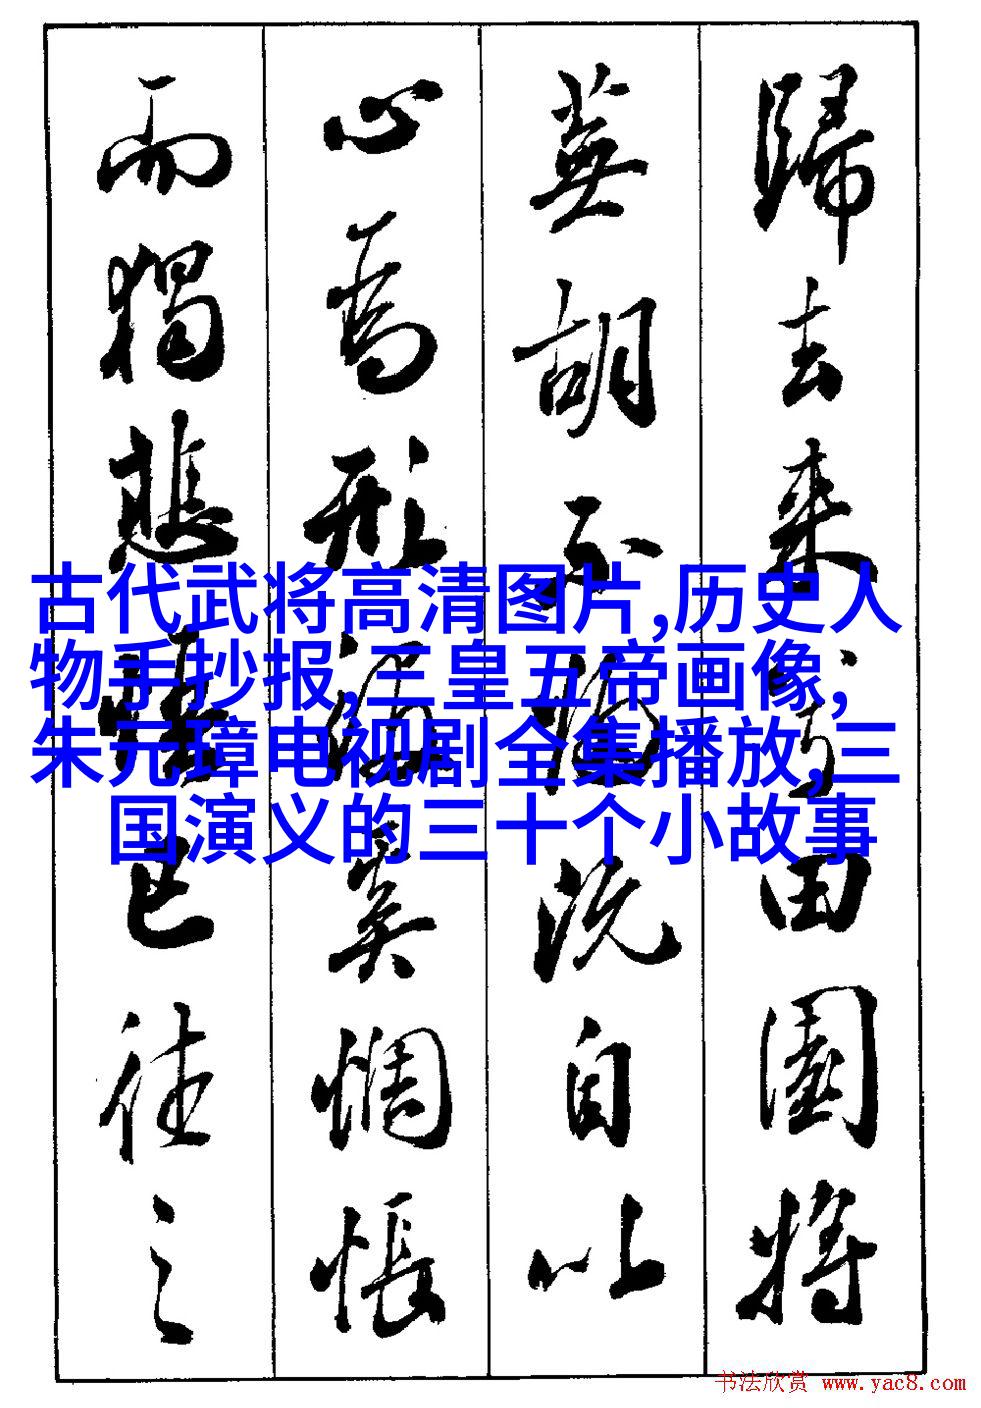 歸去来兮田園將
蕪胡不歸既自以
心為形役奚惆悵
而獨悲已往之
古代武将高清图片,历史人
物手抄报,三皇五帝画像,
朱元璋电视剧全集播放,三
国演义的三十个小故事
书法欣赏 www.yac8.com